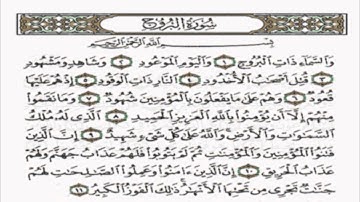 سُورَةُ البُرُوجِ
بِسْمِ اللَّهِ الرَّحْمَٰنِ الرَّحِيمِ
وَالسَّمَاءِ ذَاتِ الْبُرُوجِ ١ وَالْيَوْمِ الْمَوْعُودِ ٢ وَشَاهِدٍ وَمَشْهُودٍ
٣ قُتِلَ أَصْحَٰبُ الْأُخْدُودِ ٤ النَّارِ ذَاتِ الْوَقُودِ ٥ إِذْ هُمْ عَلَيْهَا
قُعُودٌ ٦ وَهُمْ عَلَىٰ مَا يَفْعَلُونَ بِالْمُؤْمِنِينَ شُهُودٌ ٧ وَمَا نَقَمُوا
مِنْهُمْ إِلَّا أَن يُؤْمِنُوا بِاللَّهِ الْعَزِيزِ الْحَمِيدِ ٨ الَّذِي لَهُ مُلْكُ
السَّمَٰوَٰتِ وَالْأَرْضِ وَاللَّهُ عَلَىٰ كُلِّ شَيْءٍ شَهِيدٌ ٩ إِنَّ الَّذِينَ
فَتَنُوا الْمُؤْمِنِينَ وَالْمُؤْمِنَٰتِ ثُمَّ لَمْ يَتُوبُوا فَلَهُمْ عَذَابُ جَهَنَّمَ وَلَهُمْ
عَذَابُ الْحَرِيقِ ١٠ إِنَّ الَّذِينَ ءَامَنُوا وَعَمِلُوا الصَّٰلِحَٰتِ لَهُمْ
جَنَّٰتٌ تَجْرِي مِن تَحْتِهَا الْأَنْهَٰرُ ذَٰلِكَ الْفَوْزُ الْكَبِيرُ ١١